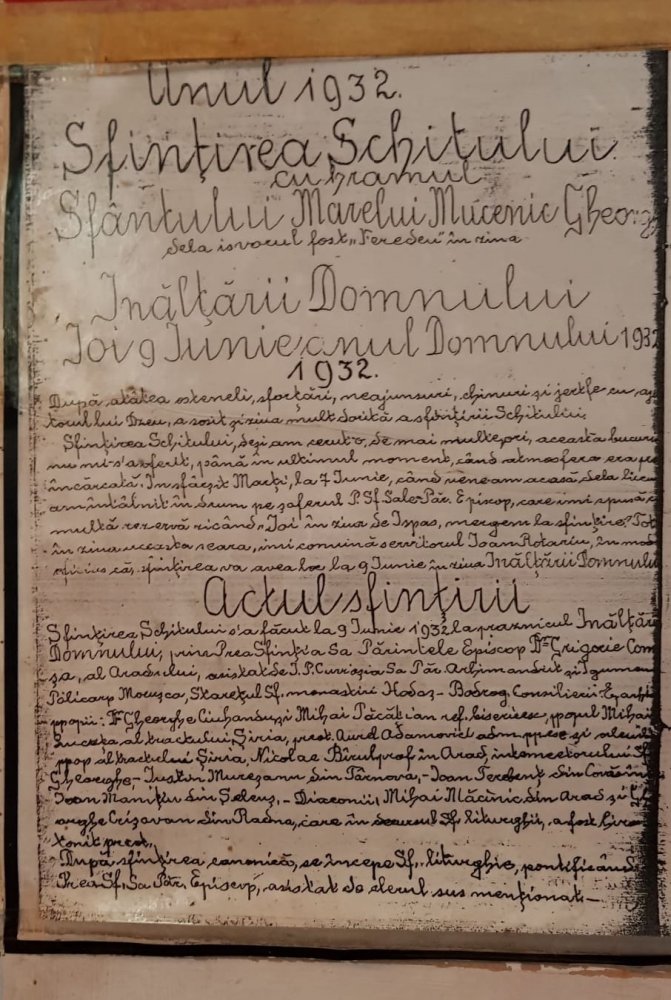 Anul 1932.
Sfințirea Schitului
cu hramul
Sfântului Marelui Mucenic Gheorg
dela isvorul fost „Feredeu" în ziua
Inălțării Domnului
Joi 9 Iunie anul Domnului 1932
1932.
După atâtea osteneli, sfortări, neajunsuri, chinuri și jertfe cu aju
torul lui Dzeu, a sosit și ziua mult dorită a sfințirii Schitului.
Sfințirea Schitului, deși am cerut-o, de mai multe ori, aceasta bucuri
nu mi s'a oferit, până în ultimul moment, când atmosfera era pre
încărcată. In sfârșit Marți, la 7 Iunie, când veneam acasă dela liceu
am întâlnit în drum pe șoferul P. Sf. Sale Păr. Episcop, care îmi spusă c
multă rezervă zicând „Joi în ziua de Ispas, mergem la sfințire." Tot
în ziua aceasta seara, îmi comunică servitorul Ioan Rotariu, în mod
oficios că, sfințirea va avea loc la 9 Iunie în ziua Inălțării Domnului
Actul sfințirii
Sfințirea Schitului s'a făcut la 9 Iunie 1932 la praznicul Inălțări
Domnului, prin Prea Sfinția Sa Părintele Episcop Dr. Grigorie Com
șa, al Aradului, asistat de I. P. Cuvioșia Sa Păr. Arhimandrit și Igumen
Policarp Morușca, Starețul Sf. monastiri Hodoș-Bodrog Consilierii
popii: Dr. Gheorghe Ciuhandu și Mihai Păcățian ref. bisericesc, popul Mihai
al tractului Șiria, prot. Aurel Adamovici adm. ppesc și
ppop al tractului Șiria, Nicolae Bîrul prof în Arad, Sf
Gheorghe - Iustin Mureșanu din Târnova, - Ioan din
Ioan Manițiu din Șeleuș, - Diaconii, Mihai Măcinic din Arad și G
orghe Crișovan din Radna, care în decursul Sf. liturghii, a fost hiro
tonit preot.
După sfințirea canonică, se începe Sf. liturghie, pontificând
Prea Sf. Sa Păr. Episcop, asistat de clerul sus menționat. —